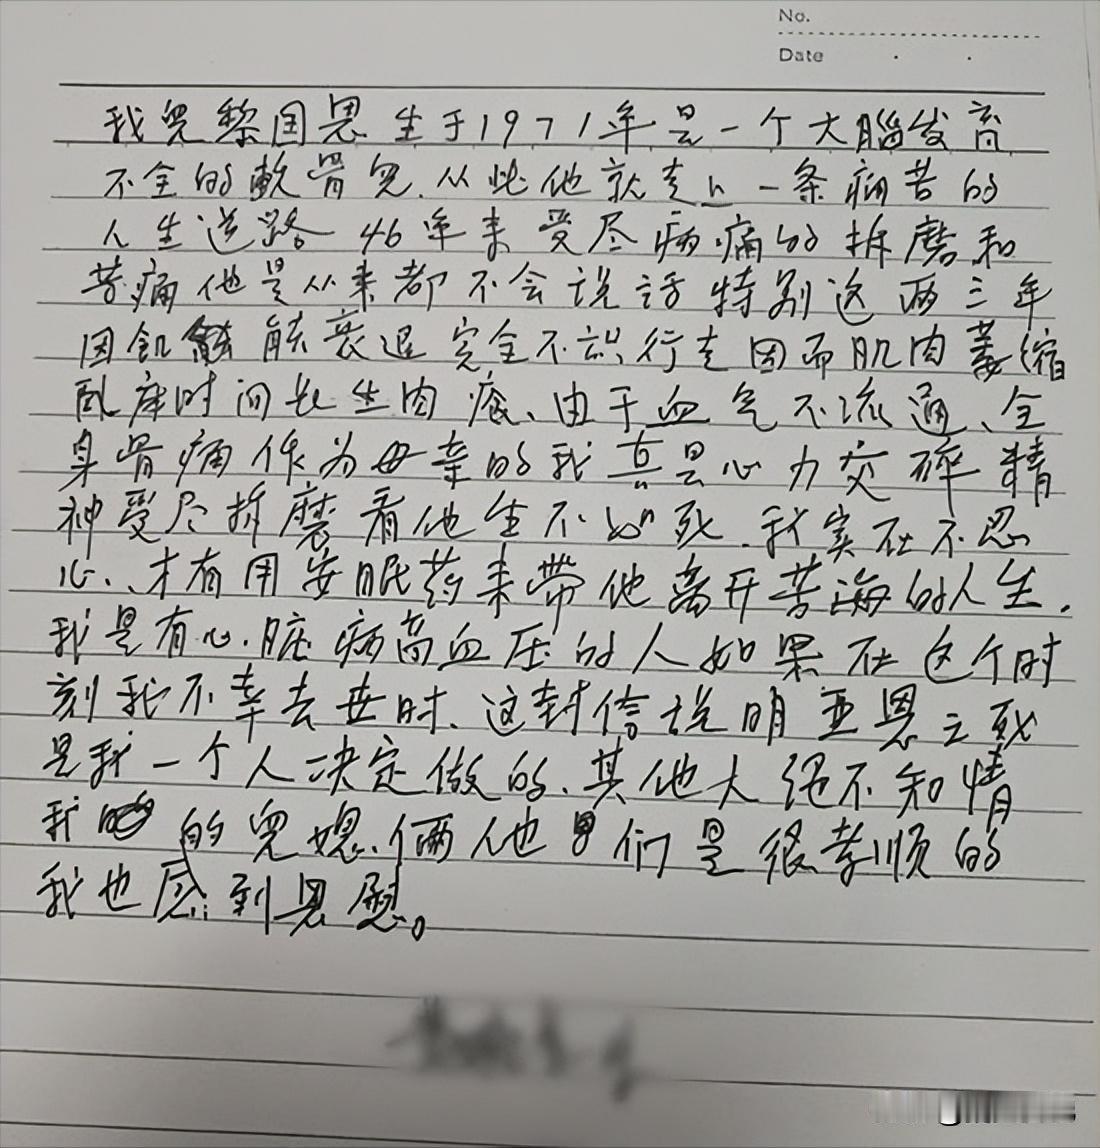 No.
Date
我兒黎国恩生于1971年是一个大腦发育
不全的軟骨兒.从此他就走上一条痛苦的
人生道路 46年来受尽病痛的折磨和
苦痛他是从来都不会说话特别这两三年
因飢能衰退完全不能行走因而肌肉萎缩
臥床时间长生肉疮、由于血气不流通、全
身骨痛作为母亲的我真是心力交碎精
神受尽折磨看他生不如死.我实在不忍
心、才有用安眠药来带他离开苦海的人生.
我是有心.脏病高血压的人如果在这个时
刻我不幸去世时、这封信说明亚恩之死
是我一个人决定做的、其他人绝不知情
我的兒媳、俩他们是很孝顺的
我也感到恩慰。